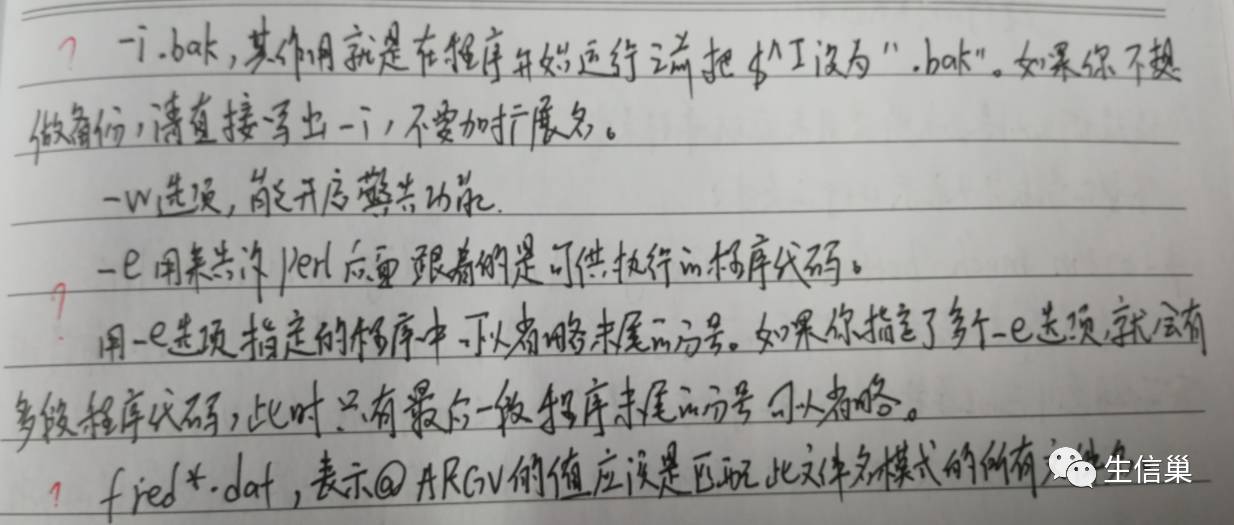 ? -i.bak,其作用就是在程序开始运行之前把$^I设为".bak"。如果你不想
做备份,请直接写出-i,不要加扩展名。
-w选项,能开启警告功能.
-e用来告诉perl后面跟着的是可供执行的程序代码。
? 用-e选项指定的程序中可以省略末尾的分号。如果你指定了多个-e选项,就会有
多段程序代码,此时只有最后一段程序末尾的分号可以省略。
? fred*.dat,表示@ARGV的值应该是匹配此文件名模式的所有
生信巢